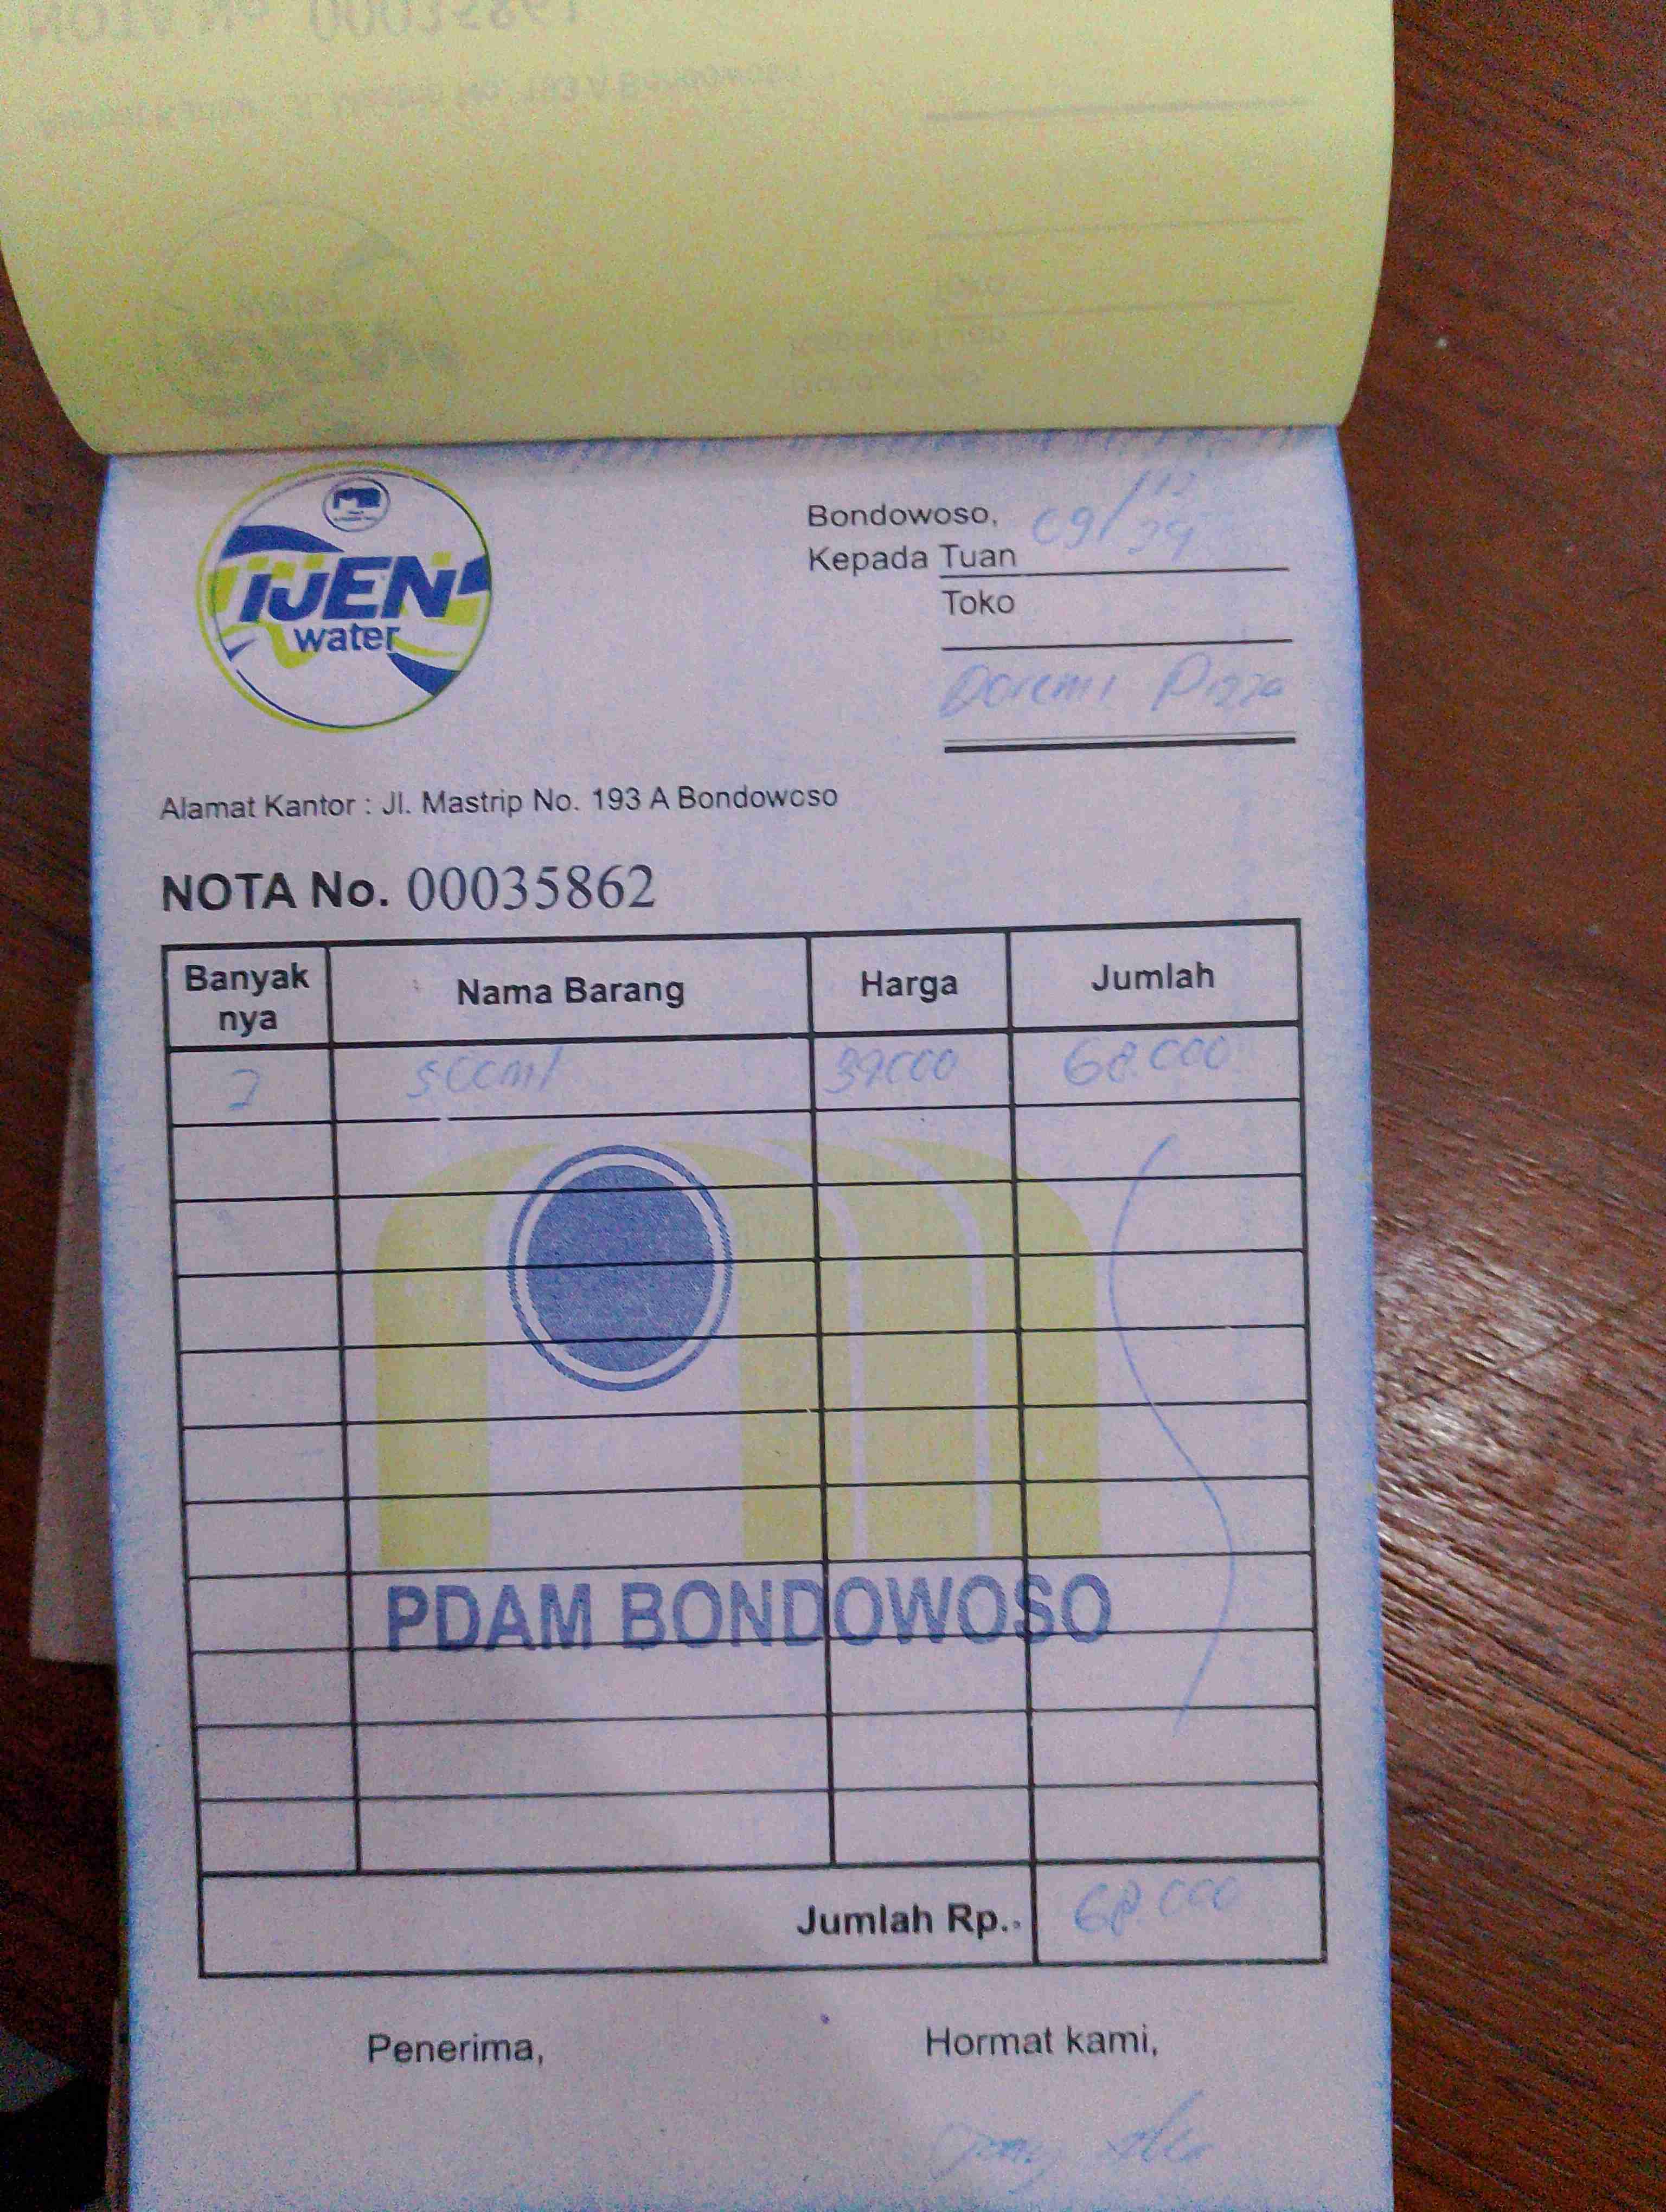 IJEN
water
Bondowoso, 09/12
24
Kepada Tuan
Toko
Doremi Pizza
Alamat Kantor : Jl. Mastrip No. 193 A Bondowoso
NOTA No. 00035862
Banyak nya Nama Barang Harga Jumlah
2 500ml 34000 68.000
PDAM BONDOWOSO
Jumlah Rp. 68.000
Penerima, Hormat kami,